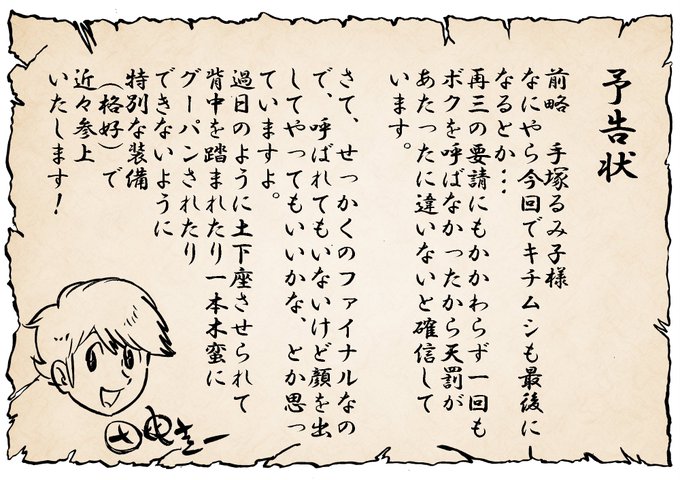 予告状
前略　手塚るみ子様
なにやら今回でキチムシも最後に
なるとか…
再三の要請にもかかわらず一回も
ボクを呼ばなかったから天罰が
あたったに違いないと確信して
います。
さて、せっかくのファイナルなの
で、呼ばれてもいないけど顔を出
してやってもいいかな、とか思っ
ていますよ。
過日のように土下座させられて
背中を踏まれたり一本木蛮に
グーパンされたり
できないように
特別な装備
（格好）で
近々参上
いたします！